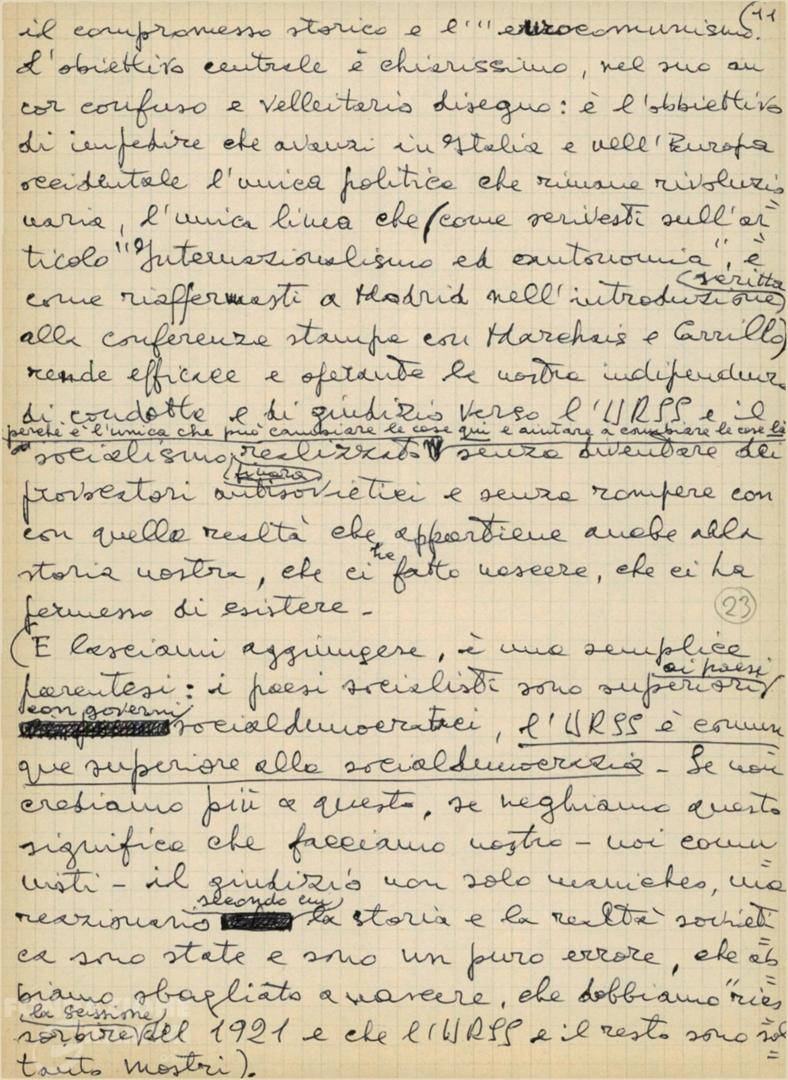 (11
il compromesso storico e l'"eurocomunismo".
L'obiettivo centrale è chiarissimo, nel suo an
cor confuso e velleitario disegno: è l'obbiettivo
di impedire che avanzi in Italia e nell'Europa
occidentale l'unica politica che rimane rivoluzio
naria, l'unica linea che (come scrivesti sull'ar=
ticolo "Internazionalismo ed autonomia", e
come riaffermasti a Madrid nell'introduzione
scritta
alla conferenza stampa con Marchais e Carrillo)
rende efficace e operante la nostra indipendenza
di condotta e di giudizio verso l'URSS e il
perché è l'unica che può cambiare le cose qui e aiutare a cambiare le cose là
socialismo realizzato senza diventare dei
finora
provocatori antisovietici e senza rompere con
con quella realtà che appartiene anche alla
storia nostra, che ci ha fatto nascere, che ci ha
permesso di esistere -
23
(E lasciami aggiungere, è una semplice
parentesi: i paesi socialisti sono superiori
ai paesi
con governi
socialdemocratici, l'URSS è comun
que superiore alla socialdemocrazia - Se non
crediamo più a questo, se neghiamo questo
significa che facciamo nostro - noi comu
nisti - il giudizio non solo manicheo, ma
reazionario secondo cui la storia e la realtà sovieti
ca sono state e sono un puro errore, che ab=
biamo sbagliato a nascere, che dobbiamo "rias=
la scissione
sorbire" del 1921 e che l'URSS e il resto sono sol=
tanto mostri).